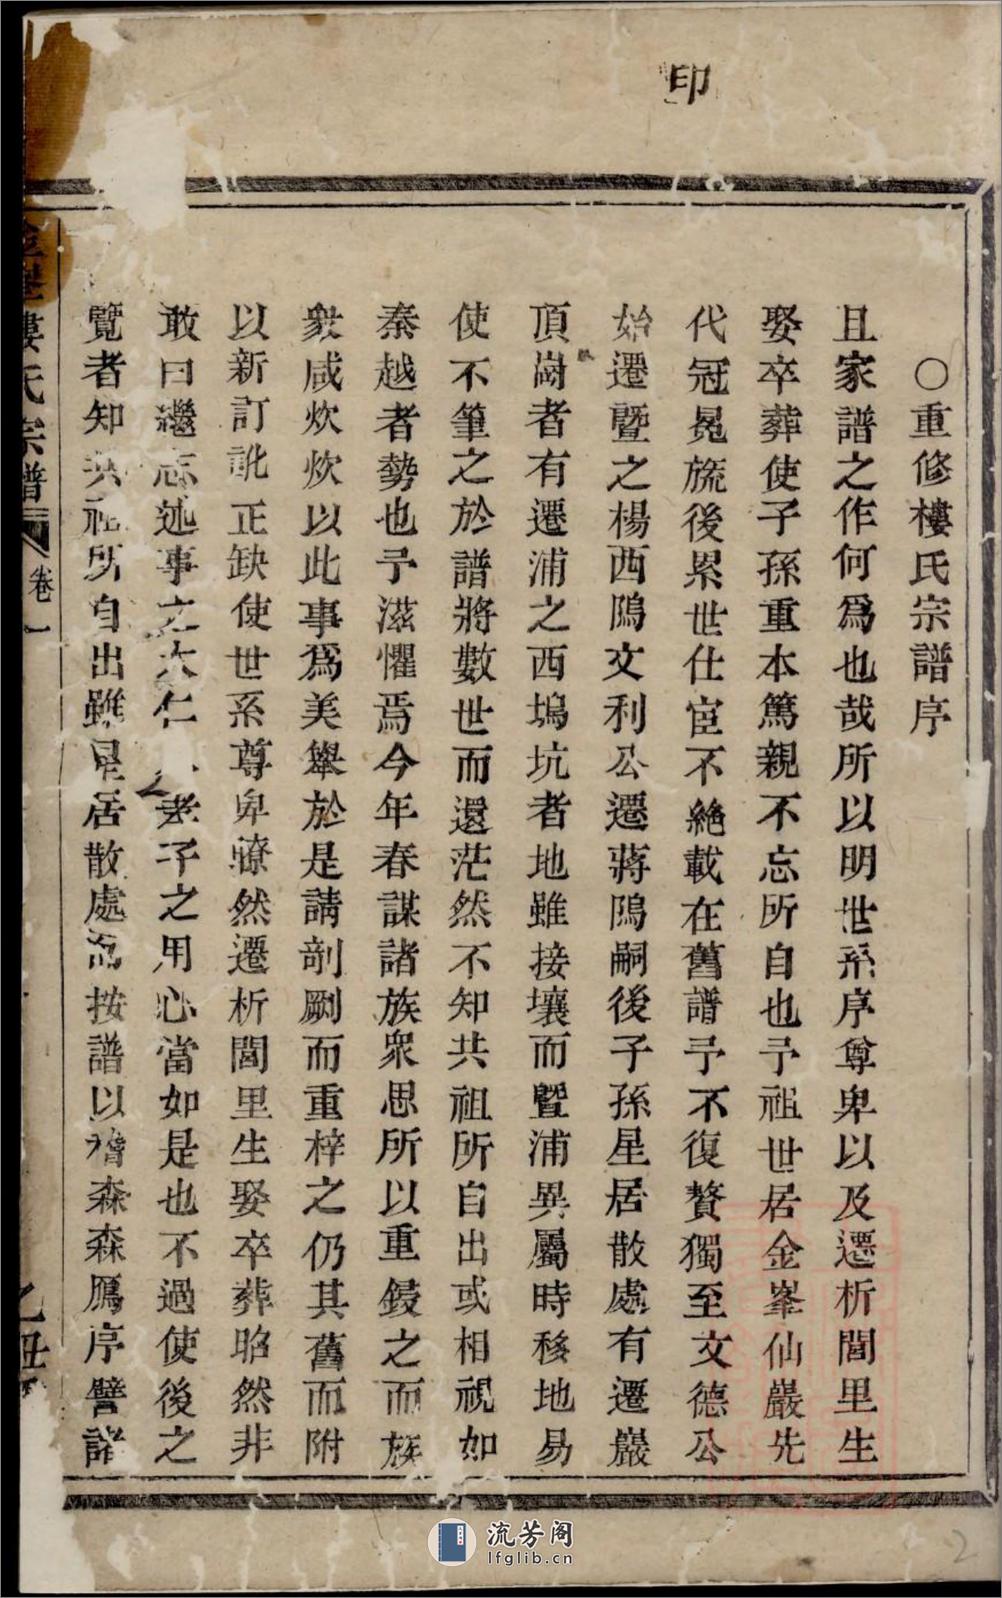 印
○重修樓氏宗譜序
且家譜之作何爲也哉所以明世系序尊卑以及遷析閭里生
娶卒葬使子孫重本篤親不忘所自也予祖世居金峯仙嚴先
代冠冕旒後累世仕宦不絶載在舊譜予不復贅獨至文德公
始遷暨之楊西隖文利公遷蔣隖嗣後子孫星居散處有遷巖
頂崗者有遷浦之西塢坑者地雖接壤而暨浦異屬時移地易
使不筆之於譜將數世而還茫然不知共祖所自出或相視如
秦越者勢也予滋懼焉今年春謀諸族衆思所以重鋟之而族
衆咸炊炊以此事爲美舉於是請剞劂而重梓之仍其舊而附
以新訂訛正缺使世系尊卑瞭然遷析閭里生娶卒葬昭然非
敢曰繼志述事之大仁人孝子之用心當如是也不過使後之
覽者知共祖所自出雖星居散處而按譜以稽森森鴈序譬諸
樓氏宗譜
卷一
流芳阁
lfglib.cn
2